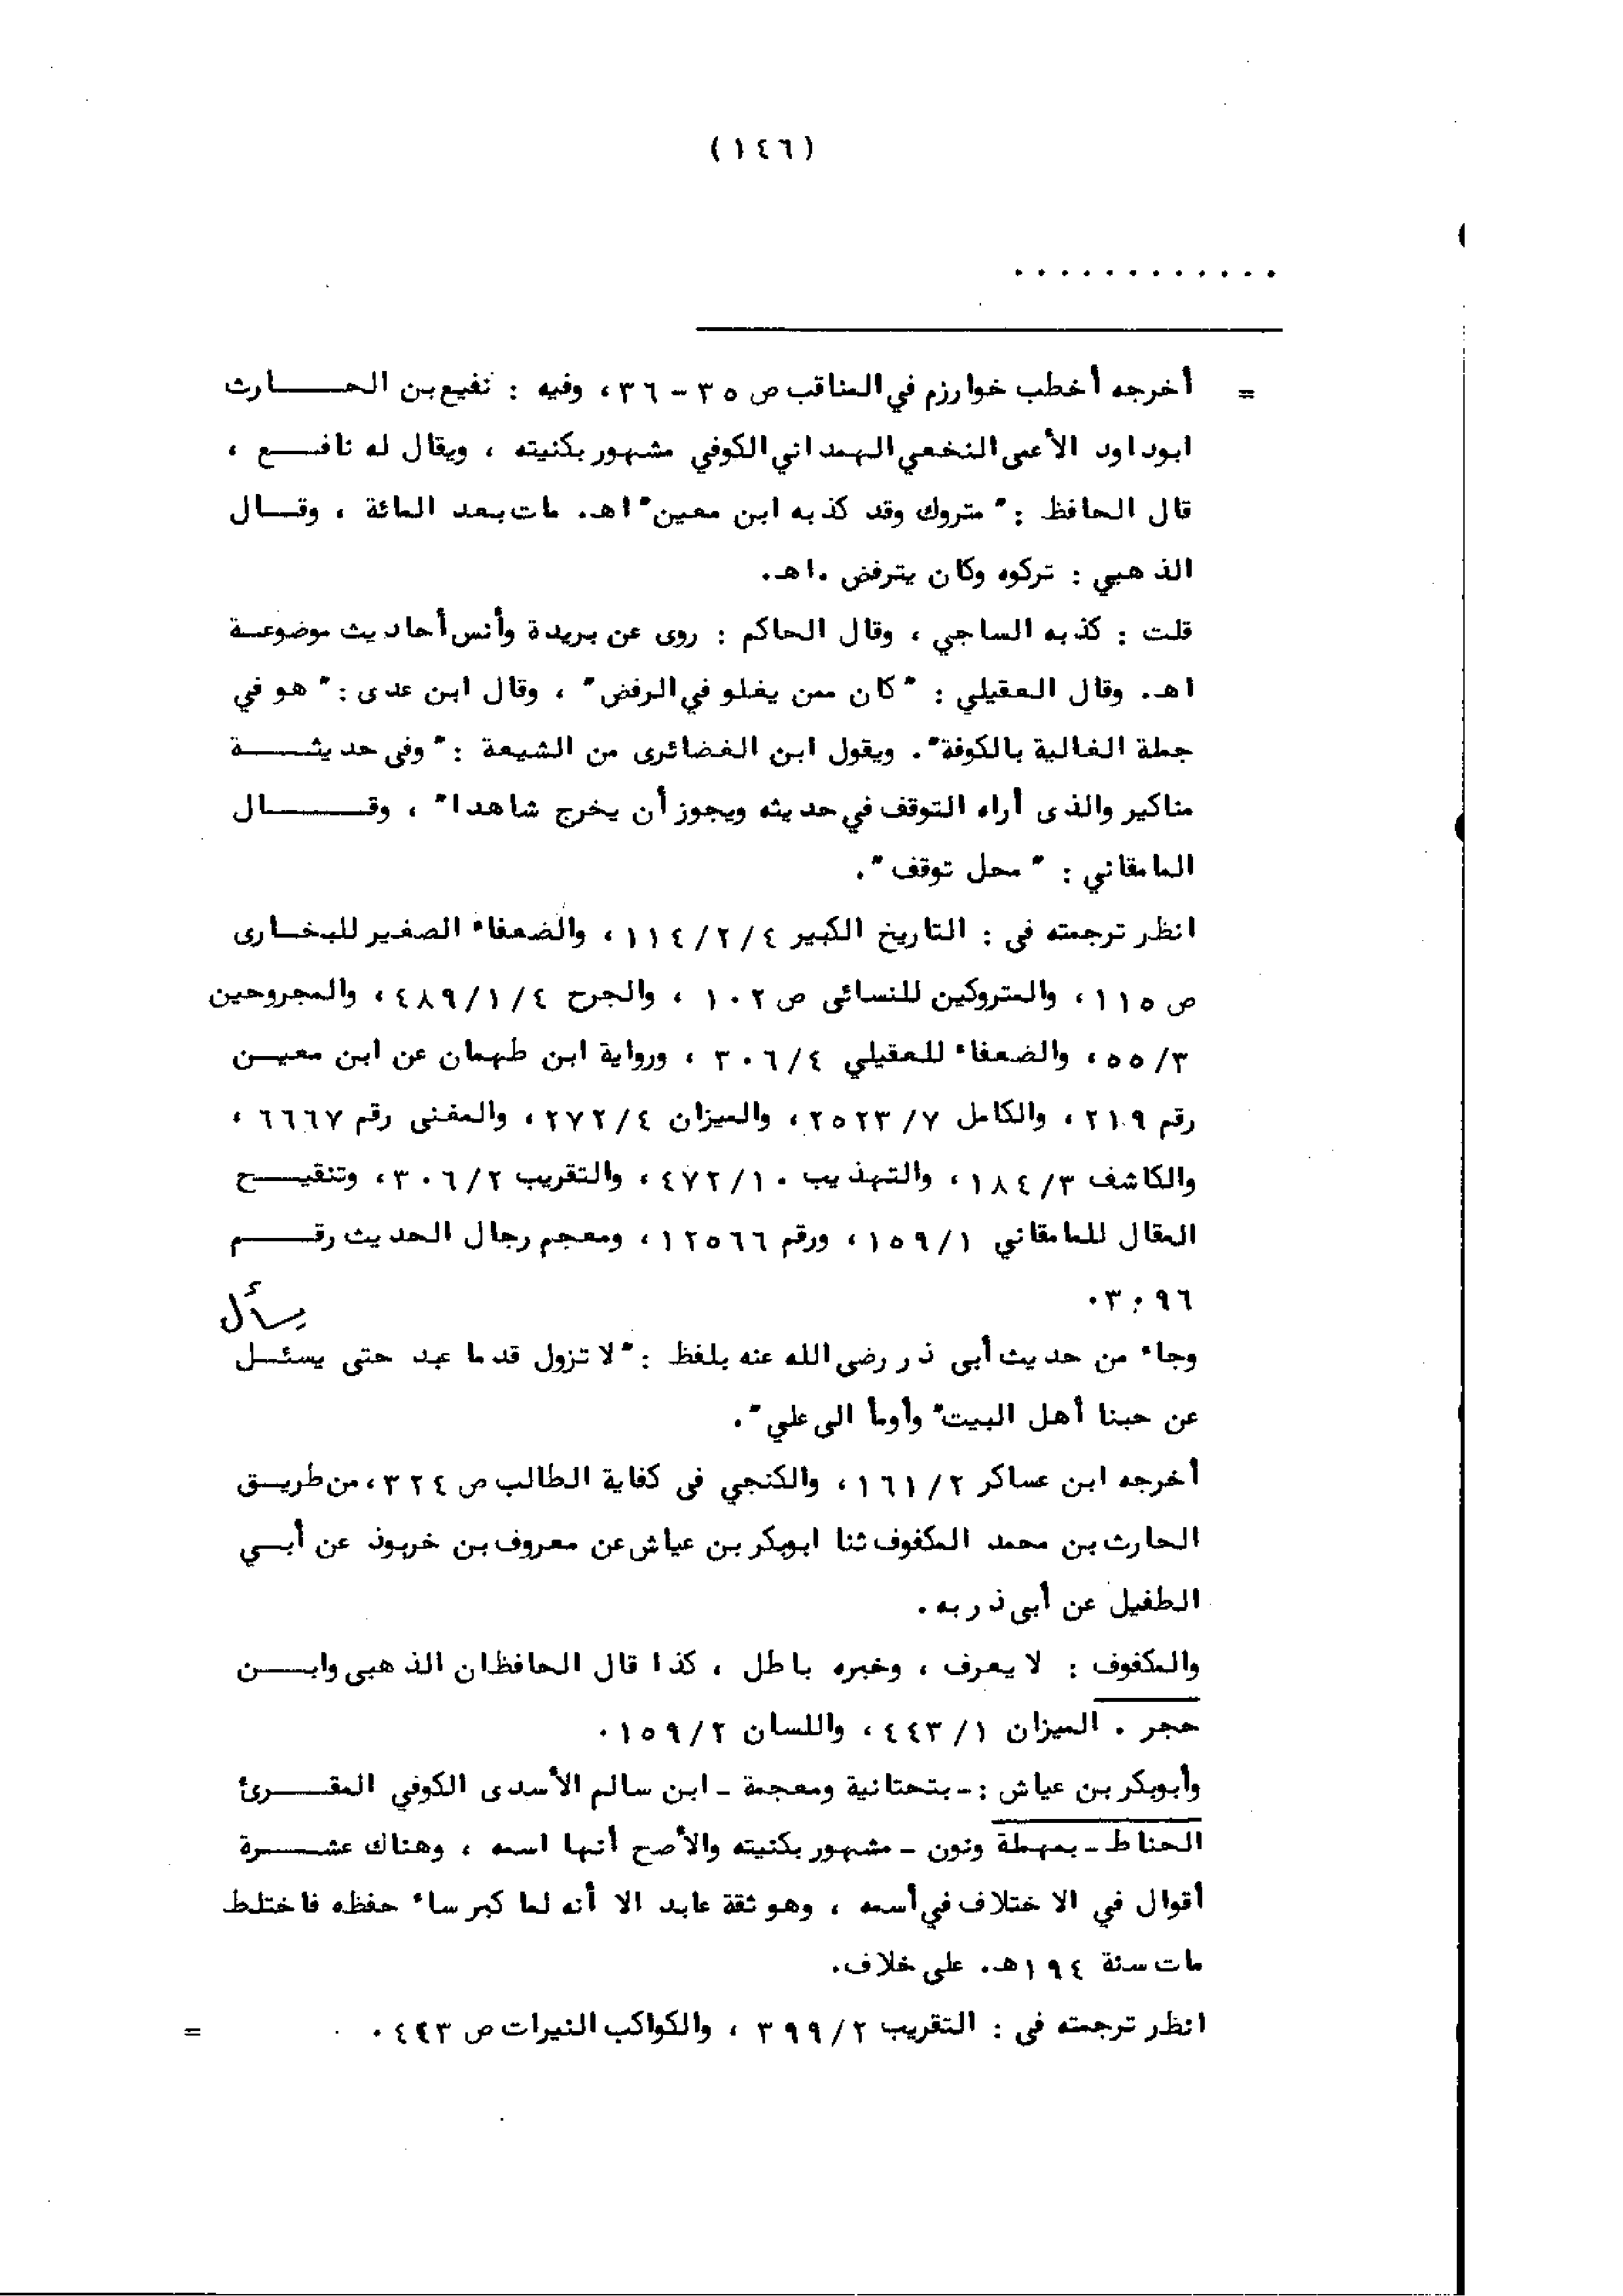 (١٤٦)
............
= أخرجه أخطب خوارزم في المناقب ص ٣٥ - ٣٦، وفيه : نفيع بن الحارث
ابوداود الأعمى النخعي الهمداني الكوفي مشهور بكنيته ، ويقال له نافع ،
قال الحافظ : " متروك وقد كذبه ابن معين" اهـ. مات بعد المائة ، وقال
الذهبي : تركوه وكان يترفض .اهـ.
قلت : كذبه الساجي ، وقال الحاكم : روى عن بريدة وأنس أحاديث موضوعة
اهـ. وقال العقيلي : "كان ممن يغلو في الرفض" ، وقال ابن عدى : "هو في
جملة الغالية بالكوفة". ويقول ابن الغضائرى من الشيعة : "وفى حديثة
مناكير والذى أراه التوقف في حديثه ويجوز أن يخرج شاهدا" ، وقال
المامقاني : " محل توقف ".
انظر ترجمته فى : التاريخ الكبير ١١٤/٢/٤، والضعفاء الصغير للبخارى
ص ١١٥، والمتروكين للنسائى ص ١٠٢ ، والجرح ٤٨٩/١/٤، والمجروحين
٥٥/٣، والضعفاء للعقيلي ٣٠٦/٤ ، ورواية ابن طهمان عن ابن معين
رقم ٢١٩ ، والكامل ٢٥٢٣/٧، والميزان ٢٧٢/٤، والمغنى رقم ٦٦٦٧ ،
والكاشف ١٨٤/٣، والتهذيب ٤٧٢/١٠، والتقريب ٣٠٦/٢، وتنقيح
المقال للمامقاني ١٥٩/١، ورقم ١٢٥٦٦، ومعجم رجال الحديث رقم
يسأل
وجاء من حديث أبى ذر رضى الله عنه بلفظ : "لا تزول قدما عبد حتى يسئل
عن حبنا أهل البيت" وأومأ الى علي".
أخرجه ابن عساكر ١٦١/٢، والكنجي فى كفاية الطالب ص ٣٢٤، من طريق
الحارث بن محمد المكفوف ثنا ابوبكر بن عياش عن معروف بن خربوذ عن أبي
الطفيل عن أبى ذر به .
والمكفوف : لا يعرف ، وخبره باطل ، كذا قال الحافظان الذهبى وابن
حجر . الميزان ٤٤٣/١، واللسان ١٥٩/٢.
وأبوبكر بن عياش : - بتحتانية ومعجمة - ابن سالم الأسدى الكوفي المقرئ
الحناط - بمهملة ونون - مشهور بكنيته والأصح أنها اسمه ، وهناك عشرة
أقوال في الاختلاف في أسمه ، وهو ثقة عابد الا أنه لما كبر ساء حفظه فاختلط
مات سنة ١٩٤هـ. على خلاف.
انظر ترجمته فى : التقريب ٣٩٩/٢ ، والكواكب النيرات ص =